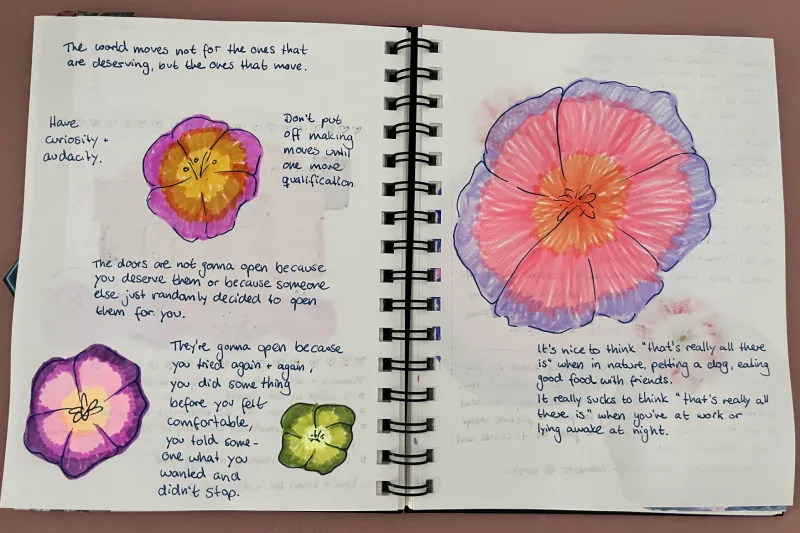 The world moves not for the ones that
are deserving, but the ones that move.
Have
curiosity +
audacity.
Don't put
off making
moves until
one more
qualification.
The doors are not gonna open because
you deserve them or because someone
else just randomly decided to open
them for you.
They're gonna open because
you tried again + again,
you did something
before you felt
comfortable,
you told some-
one what you
wanted and
didn't stop.
It's nice to think "that's really all there
is" when in nature, petting a dog, eating
good food with friends.
It really sucks to think "that's really all
there is" when you're at work or
lying awake at night.